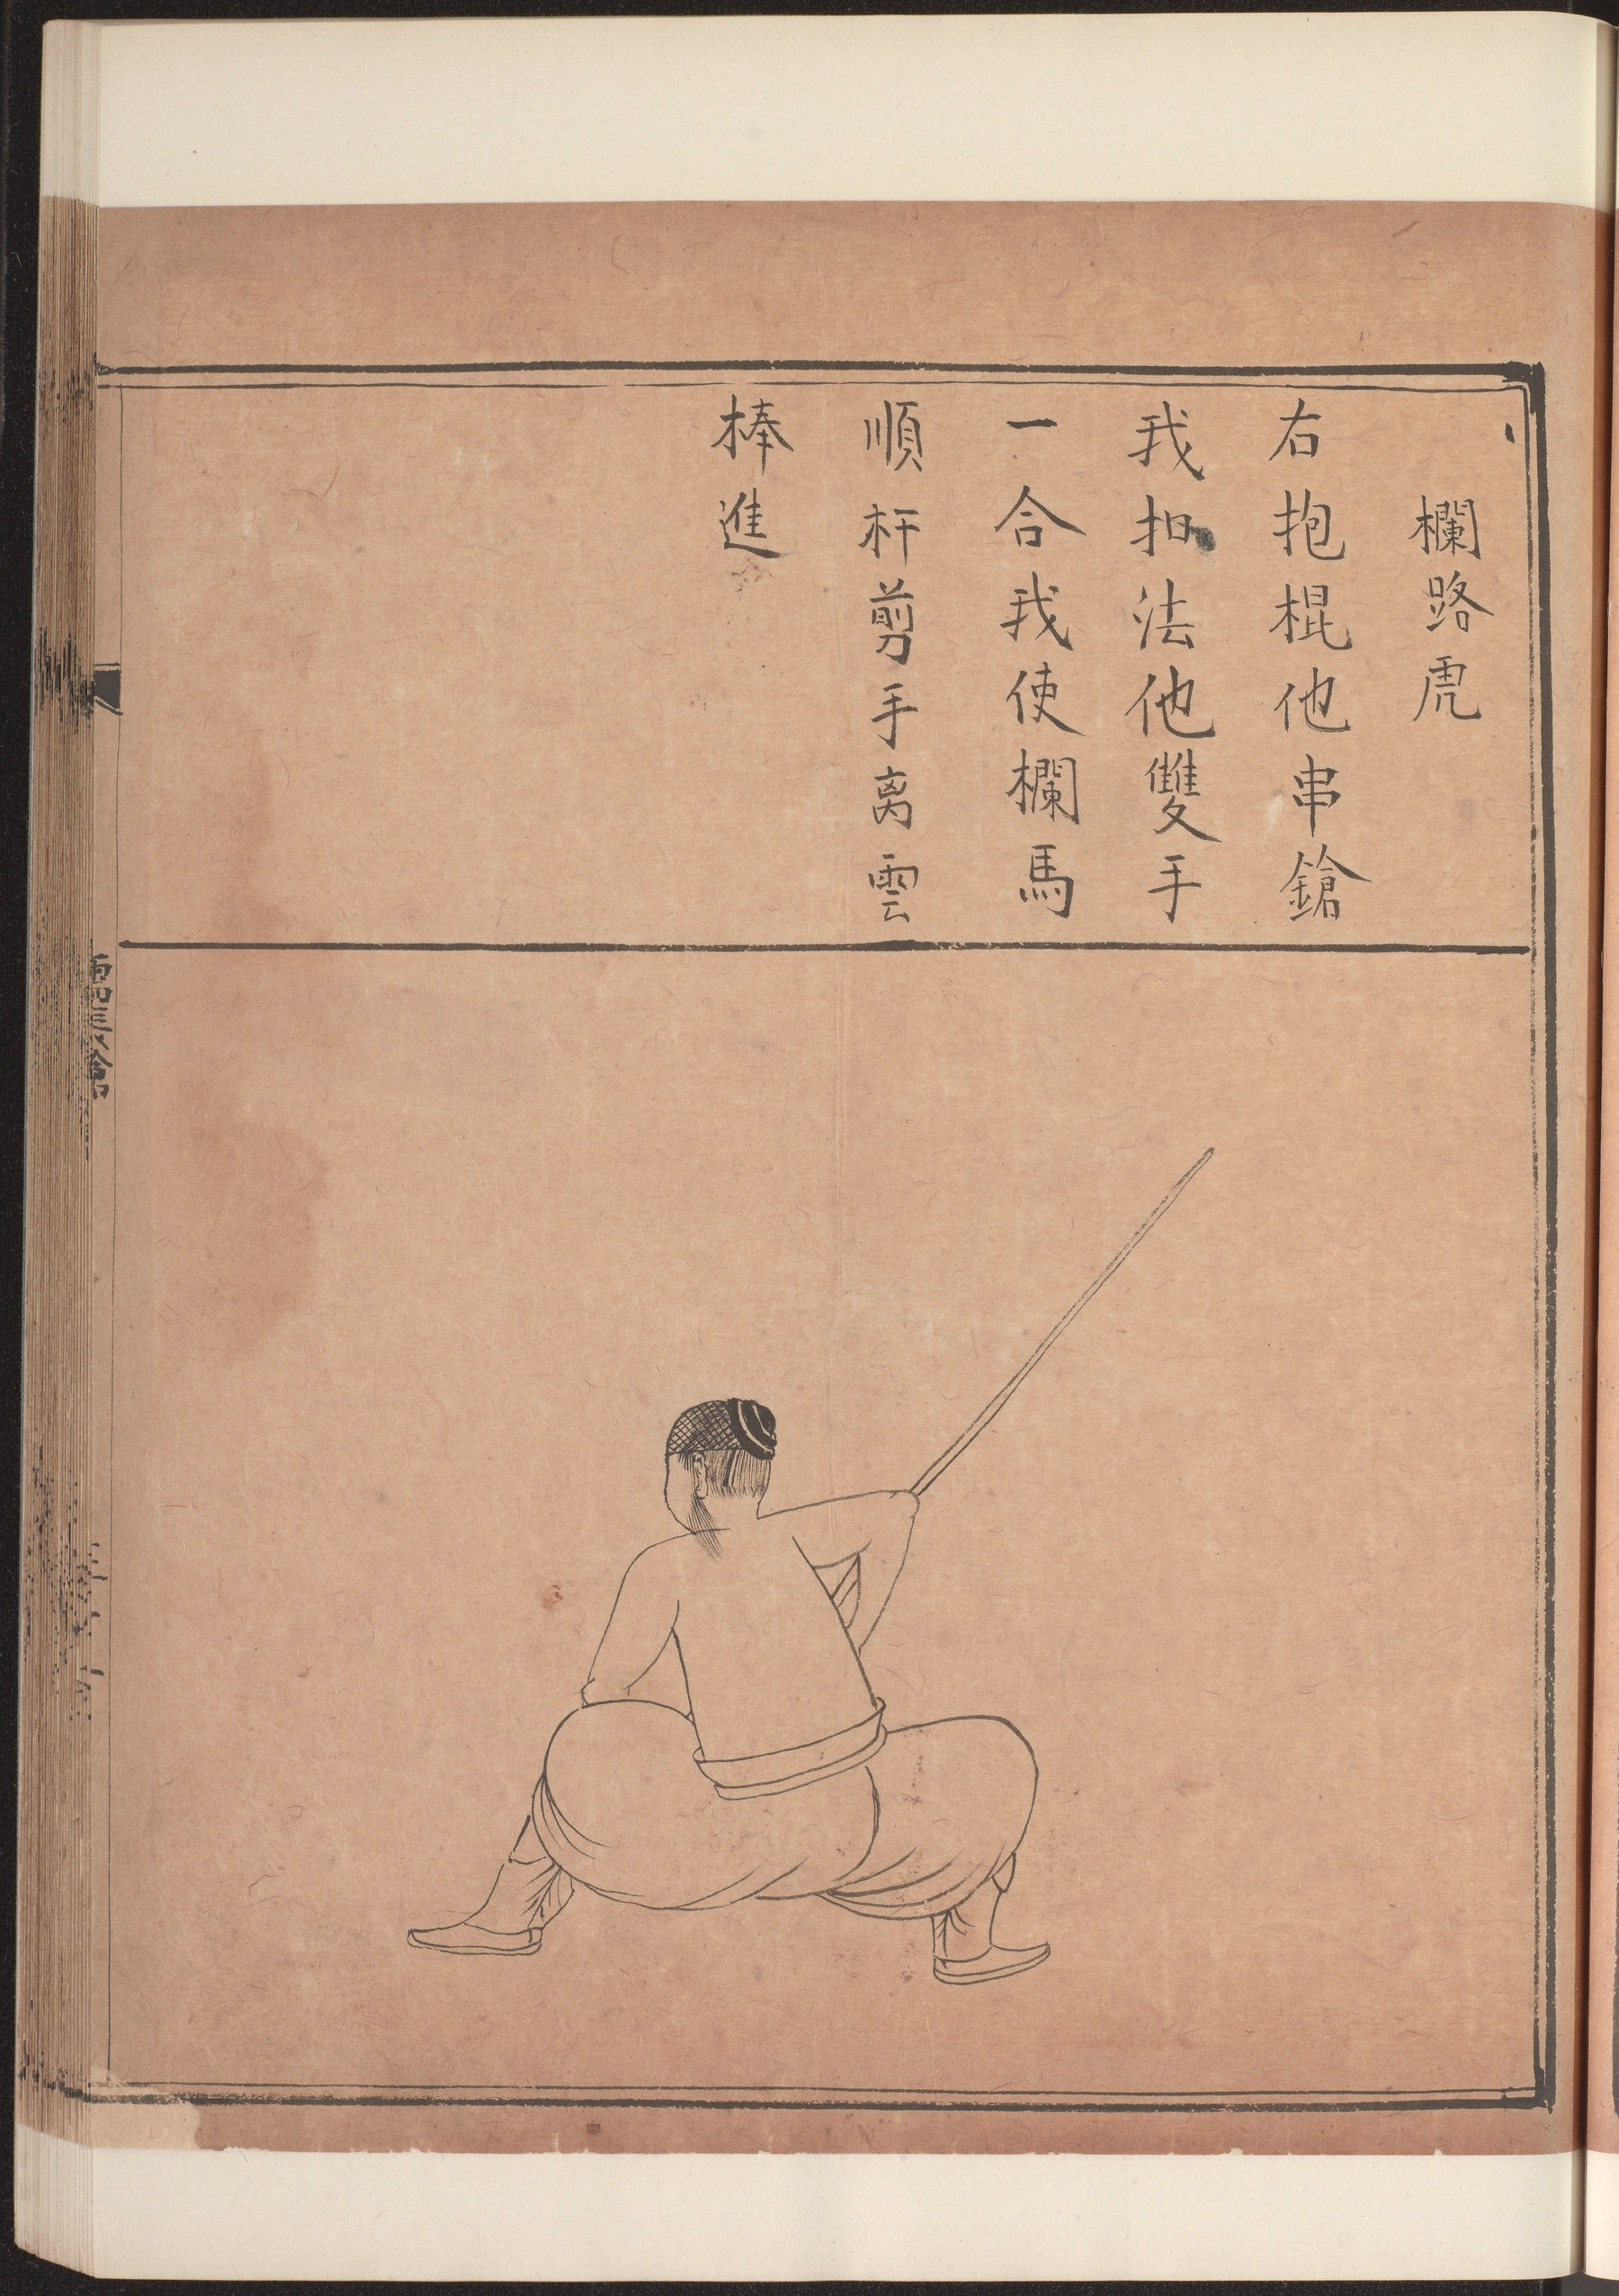 欄路虎
右抱棍他串鎗
我扣法他雙手
一合我使欄馬
順杆剪手离雲
棒進